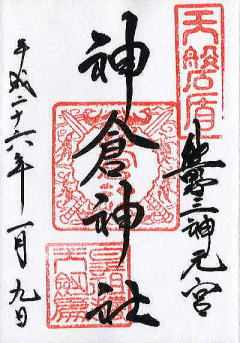 天磐盾
熊野三神元宮
神倉神社
平成二十六年一月九日